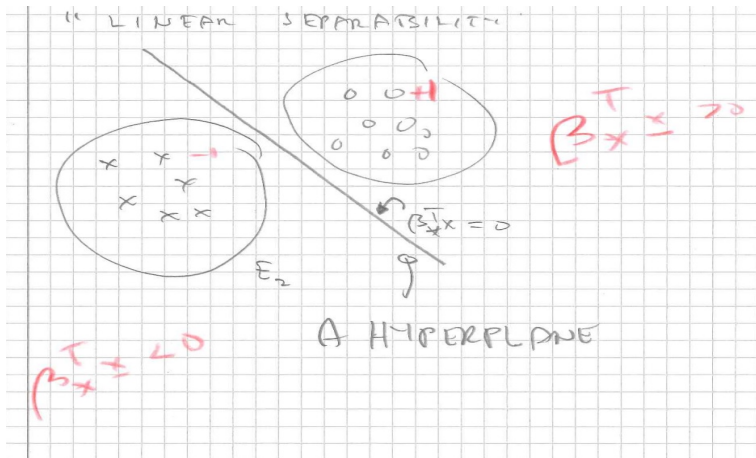 " LINEAR SEPARABILITY
+1
β*ᵀ x > 0
-1
β*ᵀ x = 0
E₂
A HYPERPLANE
β*ᵀ x < 0